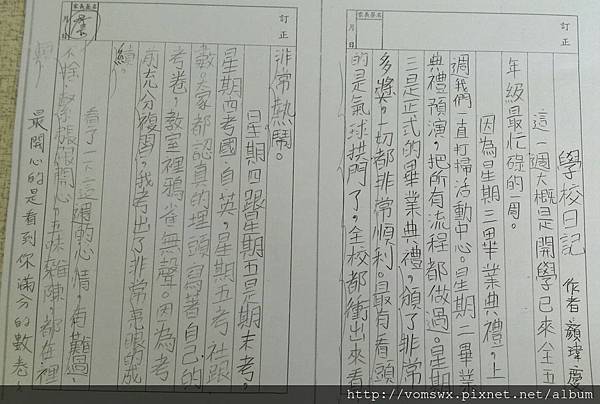 訂正
家長簽名
月 日
學校日記 作者：顏瑋慶
這一週大概是開學已來全五
年級最忙碌的一周。
因為星期三畢業典禮，上
週我們一直打掃活動中心。星期二畢業
典禮預演，把所有流程都做過。星期
三是正式的畢業典禮，頒了非常
多獎，一切都非常順利。最有看頭
的是氣球拱門了，全校都衝出來看
訂正
家長簽名
月 日
非常熱鬧。
星期四跟星期五是期末考，
星期四考國、自、英，星期五考社跟
數。大家都認真的埋頭寫著自己的
考卷，教室裡鴉雀無聲。因為考
前充分複習，我考出了非常亮眼的成
績。
看了一下這週的心情，有難過、
不捨、緊張跟開心，五味雜陳，都在裡
最開心的是看到你滿分的數卷
http://vomswx.pixnet.net/album